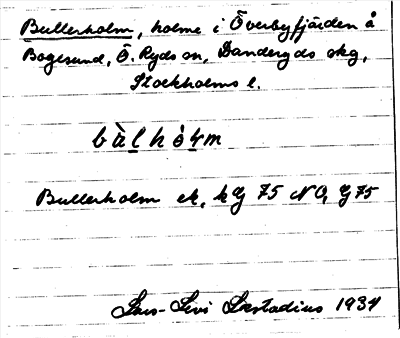 Bullerholm, holme i Överbyfjärden å
Bogesund, Ö. Ryds sn, Danderyds skg,
Stockholms l.
bàlhòlm
Bullerholm ek, kG 75 NO, G 75
Lars-Levi Læstadius 1934